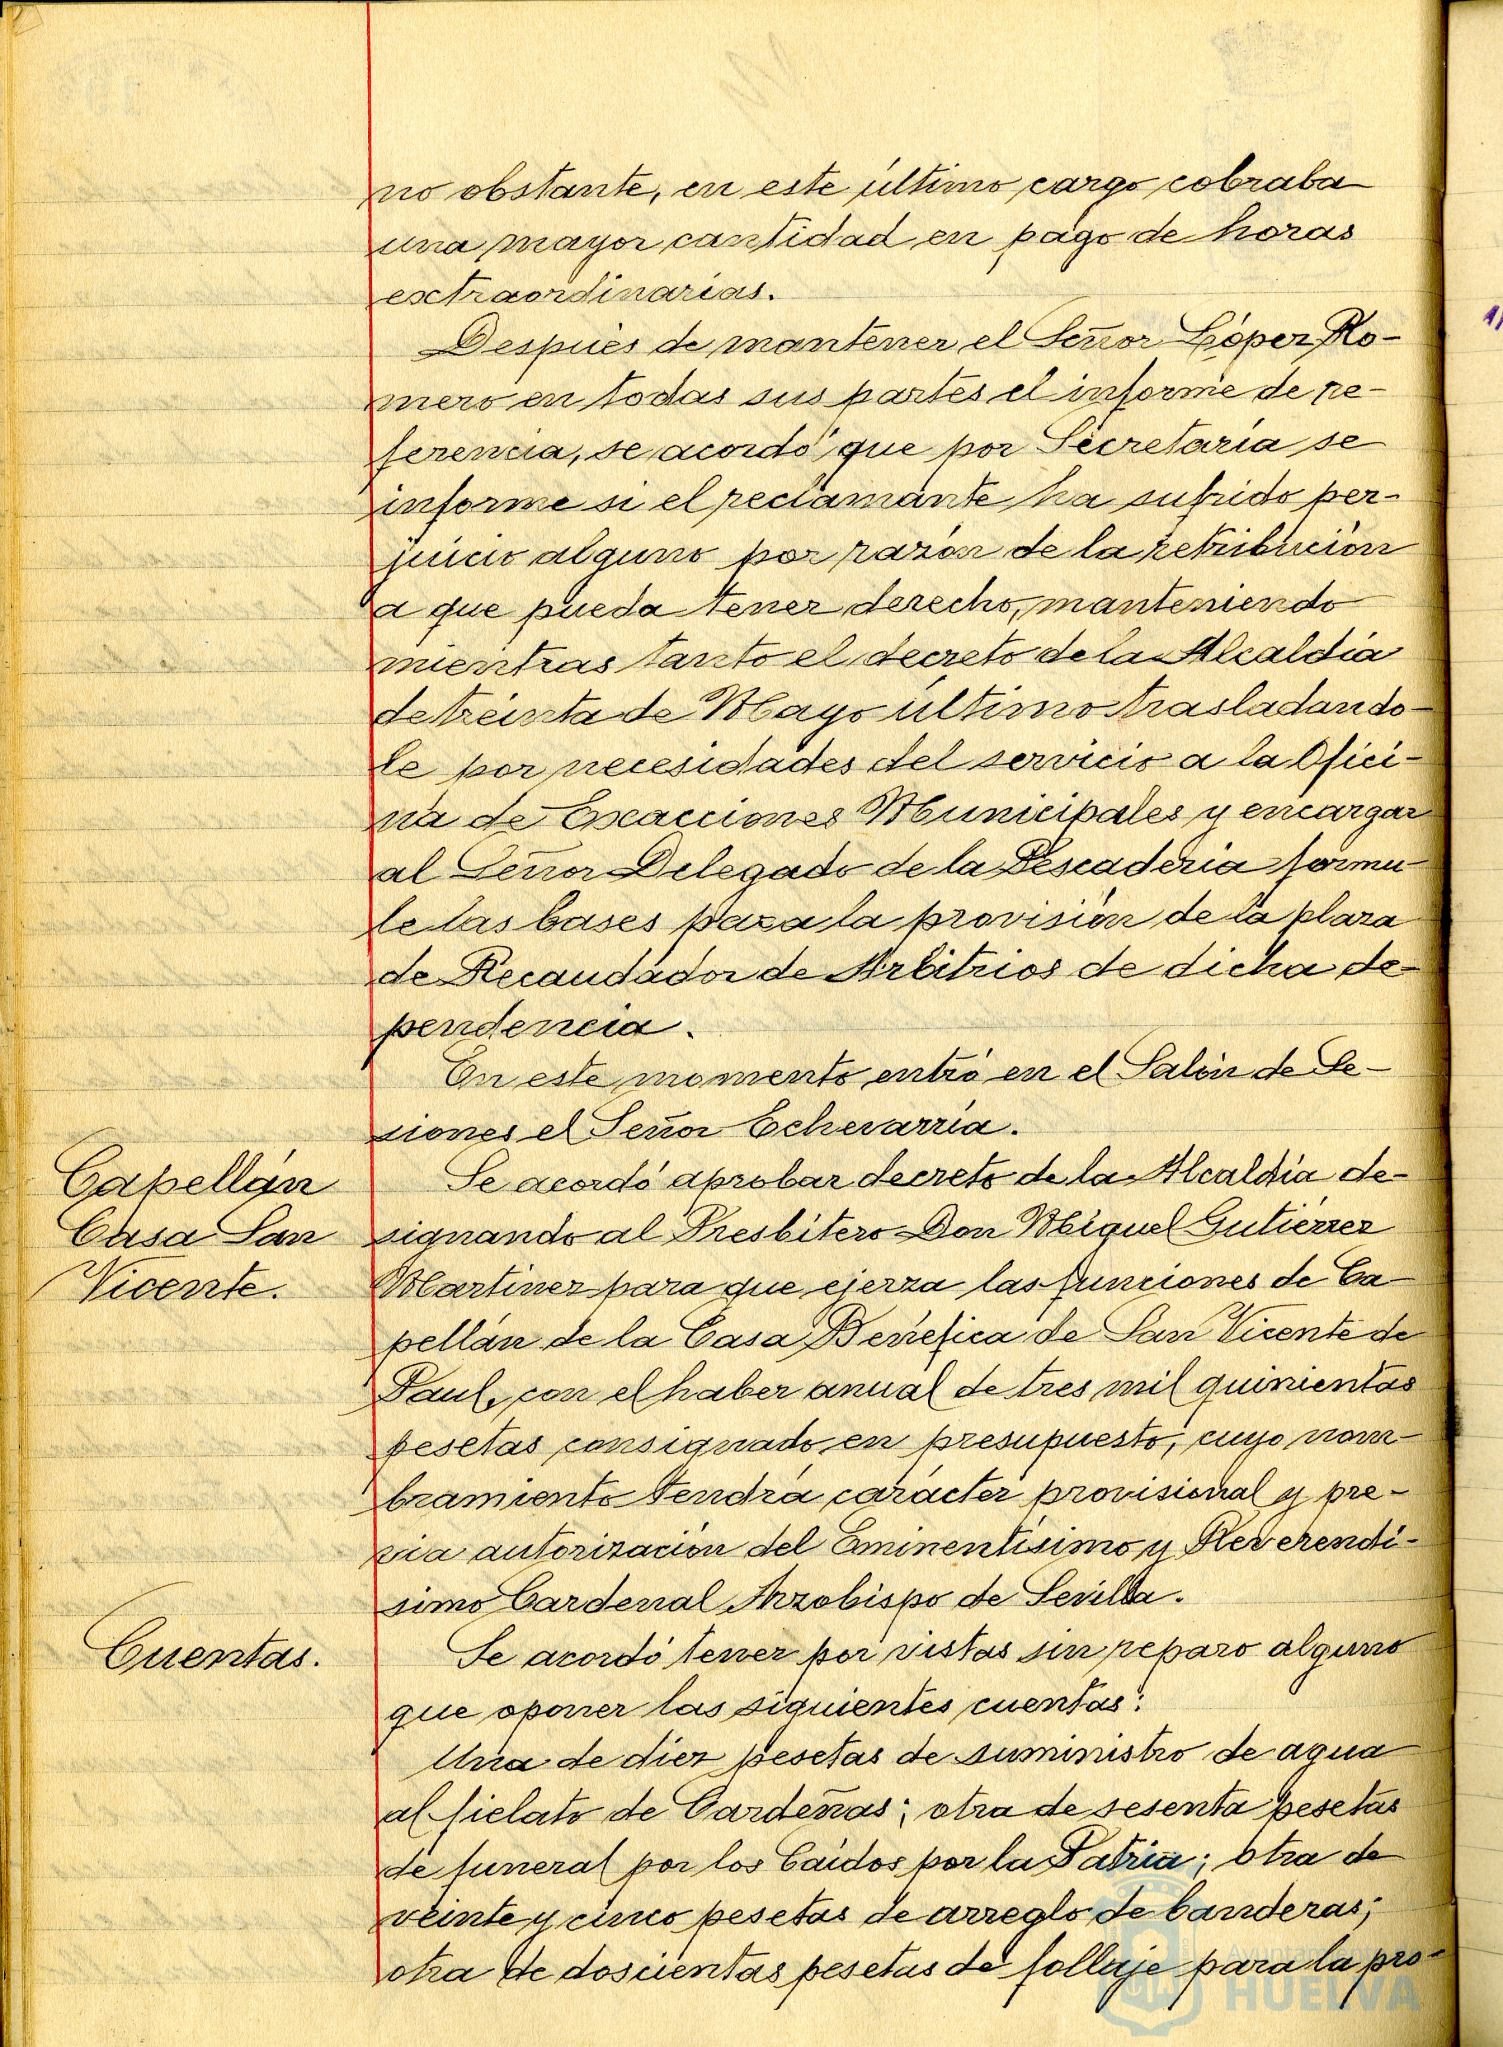 no obstante, en este último cargo cobraba
una mayor cantidad en pago de horas
extraordinarias.
Después de mantener el Señor López Ro-
mero en todas sus partes el informe de re-
ferencia, se acordó que por Secretaría se
informe si el reclamante ha sufrido per-
juicio alguno por razón de la retribución
a que pueda tener derecho, manteniendo
mientras tanto el decreto de la Alcaldía
de treinta de Mayo último trasladando-
le por necesidades del servicio a la Ofici-
na de Exacciones Municipales y encargar
al Señor Delegado de la Pescadería formu-
le las bases para la provisión de la plaza
de Recaudador de Arbitrios de dicha de-
pendencia.
En este momento entró en el Salón de Se-
siones el Señor Echevarría.
Capellán
Casa San
Vicente.
Se acordó aprobar decreto de la Alcaldía de-
signando al Presbítero Don Miguel Gutiérrez
Martínez para que ejerza las funciones de Ca-
pellán de la Casa Benéfica de San Vicente de
Paul, con el haber anual de tres mil quinientas
pesetas consignado en presupuesto, cuyo nom-
bramiento tendrá carácter provisional y pre-
via autorización del Eminentísimo y Reverendí-
simo Cardenal Arzobispo de Sevilla.
Cuentas.
Se acordó tener por vistas sin reparo alguno
que oponer las siguientes cuentas:
Una de diez pesetas de suministro de agua
al fielato de Cardeñas; otra de sesenta pesetas
de funeral por los Caídos por la Patria; otra de
veinte y cinco pesetas de arreglo de banderas;
otra de doscientas pesetas de follaje para la pro-
Ayuntamiento
HUELVA